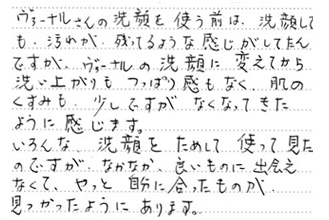 ヴァーナルさんの洗顔を使う前は、洗顔して
も、汚れが、残ってるような感じがしてたん
ですが、ヴァーナルの洗顔に、変えてから
洗い上がりも つっぱり感もなく、肌の
くすみも、少しですが なくなってきた
ように感じます。
いろんな、洗顔を ためして 使って見た
のですが、なかなか、良いものに 出会え
なくて、やっと 自分に合ったものが、
見つかったように あります。